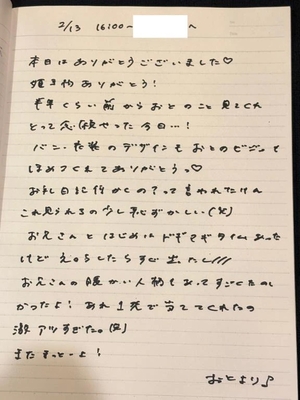 2/13 16:00~ へ
本日はありがとうございました♡
頂き物ありがとう!
半年くらい前からおとのこと見てくれ
とって念願やった今日…!
パネル、衣装のデザインもおとのビジュも
ほめてくれてありがとうっ♡
お礼日記行かんのって言われたけん
これ見られるの少し恥ずかしい(笑)
お兄さんとはじめはドギマギタイムあった
けど えろしたらすぐ
お兄さんの暖かい人柄もあってすごくたのし
かったよ! あれ1発で当ててくれたの
激アツすぎた。(笑)
またきっとーよ!
おとより♪